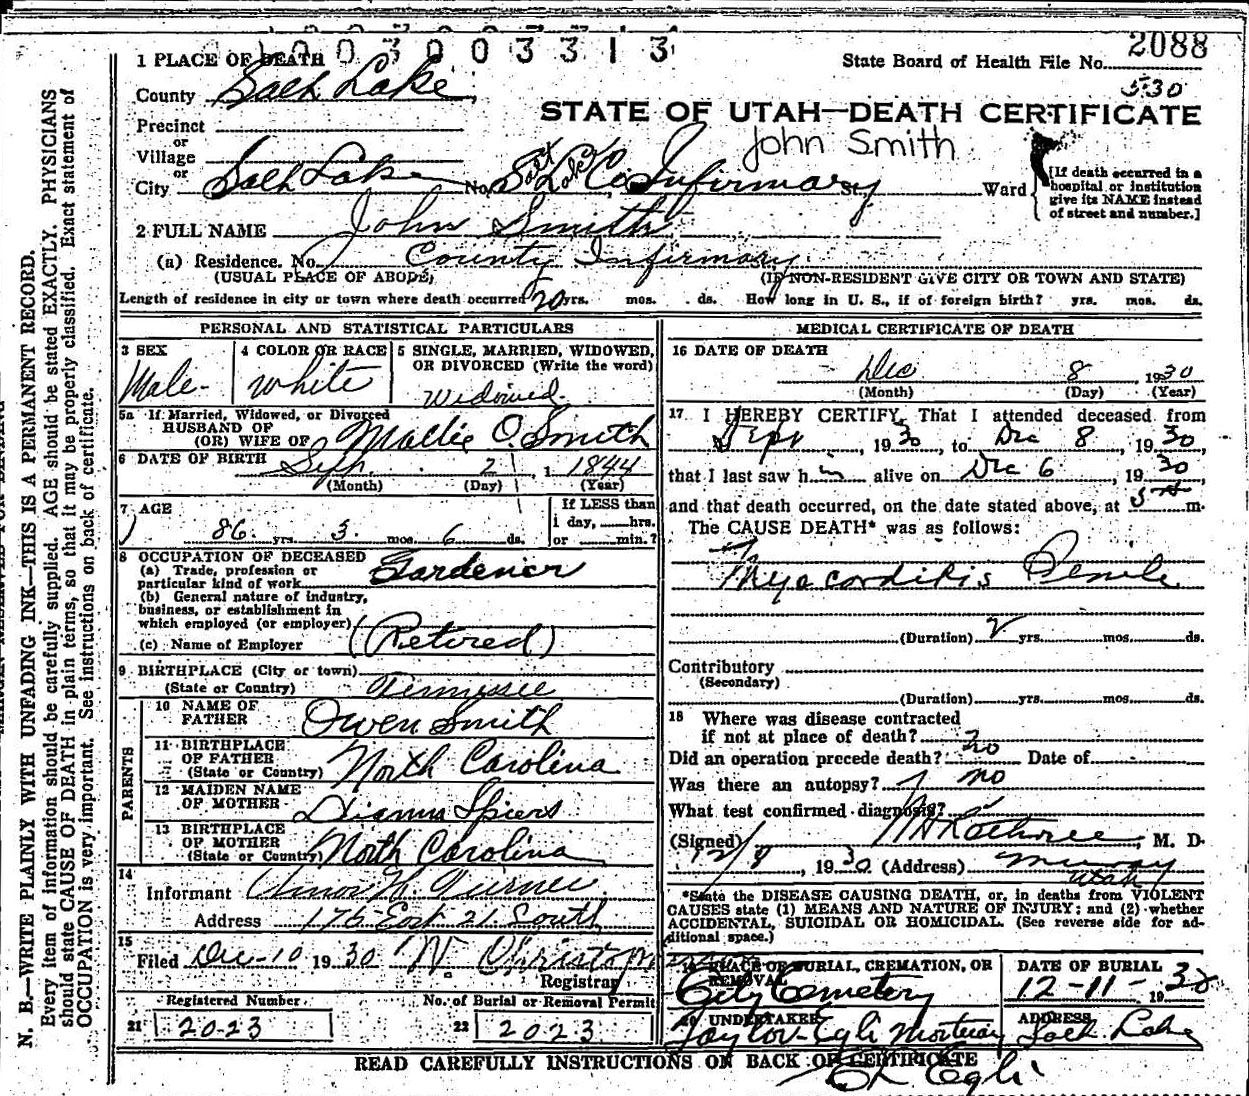 1003003313
2088
State Board of Health File No.
530
1 PLACE OF DEATH
County Salt Lake
STATE OF UTAH—DEATH CERTIFICATE
Precinct
or
Village
John Smith
or
City Salt Lake No. Salt Lake Co Infirmary St. Ward
[If death occurred in a
hospital or institution
give its NAME instead
of street and number.]
2 FULL NAME John Smith
(a) Residence. No. County Infirmary
(USUAL PLACE OF ABODE) (IF NON-RESIDENT GIVE CITY OR TOWN AND STATE)
Length of residence in city or town where death occurred 50 yrs. mos. ds. How long in U. S., if of foreign birth? yrs. mos. ds.
PERSONAL AND STATISTICAL PARTICULARS
3 SEX
Male
4 COLOR OR RACE
White
5 SINGLE, MARRIED, WIDOWED,
OR DIVORCED (Write the word)
Widowed
5a If Married, Widowed, or Divorced
HUSBAND OF
(OR) WIFE OF Mallie O. Smith
6 DATE OF BIRTH Sept. 2 1844
(Month) (Day) (Year)
7 AGE
86 yrs. 3 mos. 6 ds.
If LESS than
1 day, hrs.
or min.?
8 OCCUPATION OF DECEASED
(a) Trade, profession or
particular kind of work Gardener
(b) General nature of industry,
business, or establishment in
which employed (or employer)
(c) Name of Employer (Retired)
9 BIRTHPLACE (City or town)
(State or Country) Tennessee
PARENTS
10 NAME OF
FATHER Owen Smith
11 BIRTHPLACE
OF FATHER
(State or Country) North Carolina
12 MAIDEN NAME
OF MOTHER Spiers
13 BIRTHPLACE
OF MOTHER
(State or Country) North Carolina
14
Informant Amos H. Turner
Address 176 East 21 South
15
Filed Dec-10 1930
Registrar
Registered Number
21 2023
No. of Burial or Removal Permit
22 2023
MEDICAL CERTIFICATE OF DEATH
16 DATE OF DEATH
Dec 8 1930
(Month) (Day) (Year)
17 I HEREBY CERTIFY, That I attended deceased from
Sept, 1930, to Dec 8, 1930,
that I last saw him alive on Dec 6, 1930
and that death occurred, on the date stated above, at 5 A m.
The CAUSE DEATH* was as follows:
Myocarditis Senile
(Duration) 2 yrs. mos. ds.
Contributory
(Secondary)
(Duration) yrs. mos. ds.
18 Where was disease contracted
if not at place of death?
Did an operation precede death? no Date of
Was there an autopsy? no
What test confirmed diagnosis?
(Signed) M. D.
12/9, 1930 (Address) Murray
Utah
*State the DISEASE CAUSING DEATH, or, in deaths from VIOLENT
CAUSES state (1) MEANS AND NATURE OF INJURY; and (2) whether
ACCIDENTAL, SUICIDAL OR HOMICIDAL. (See reverse side for ad-
ditional space.)
19 PLACE OF BURIAL, CREMATION, OR
REMOVAL
City Cemetery
DATE OF BURIAL
12-11- 1930
20 UNDERTAKER
Taylor-Egli Mortuary
ADDRESS
Salt Lake
READ CAREFULLY INSTRUCTIONS ON BACK OF CERTIFICATE
Egli
N. B.—WRITE PLAINLY WITH UNFADING INK—THIS IS A PERMANENT RECORD.
Every item of information should be carefully supplied. AGE should be stated EXACTLY. PHYSICIANS
should state CAUSE OF DEATH in plain terms, so that it may be properly classified. Exact statement of
OCCUPATION is very important. See instructions on back of certificate.